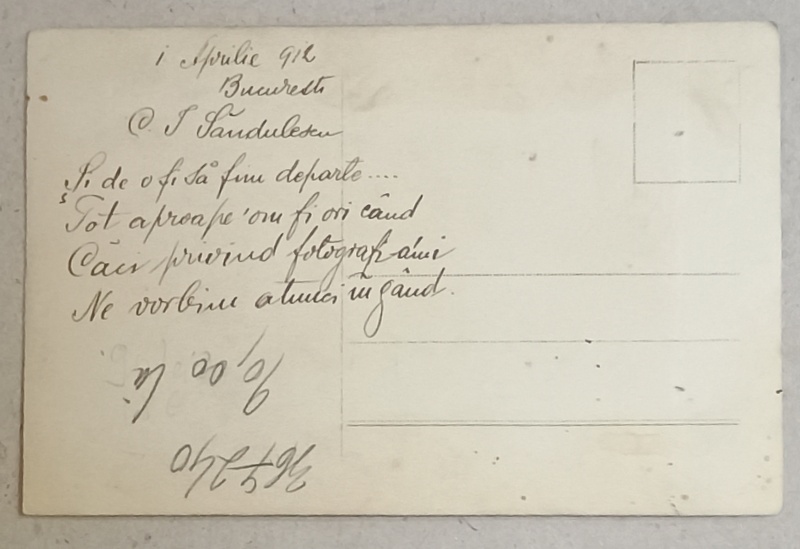 1 Aprilie 912
Bucuresti
C. I Săndulescu
Și de o fi să fim departe....
Tot aproape 'om fi ori când
Căci privind fotografi-ami
Ne vorbim atunci în gând.
lei